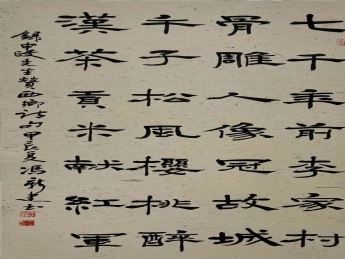 七千年前李家村
骨雕人像冠故城
午子松風櫻桃醉
漢茶貢米献紅軍
錄中先生贊西鄉詩甲辰夏馮新